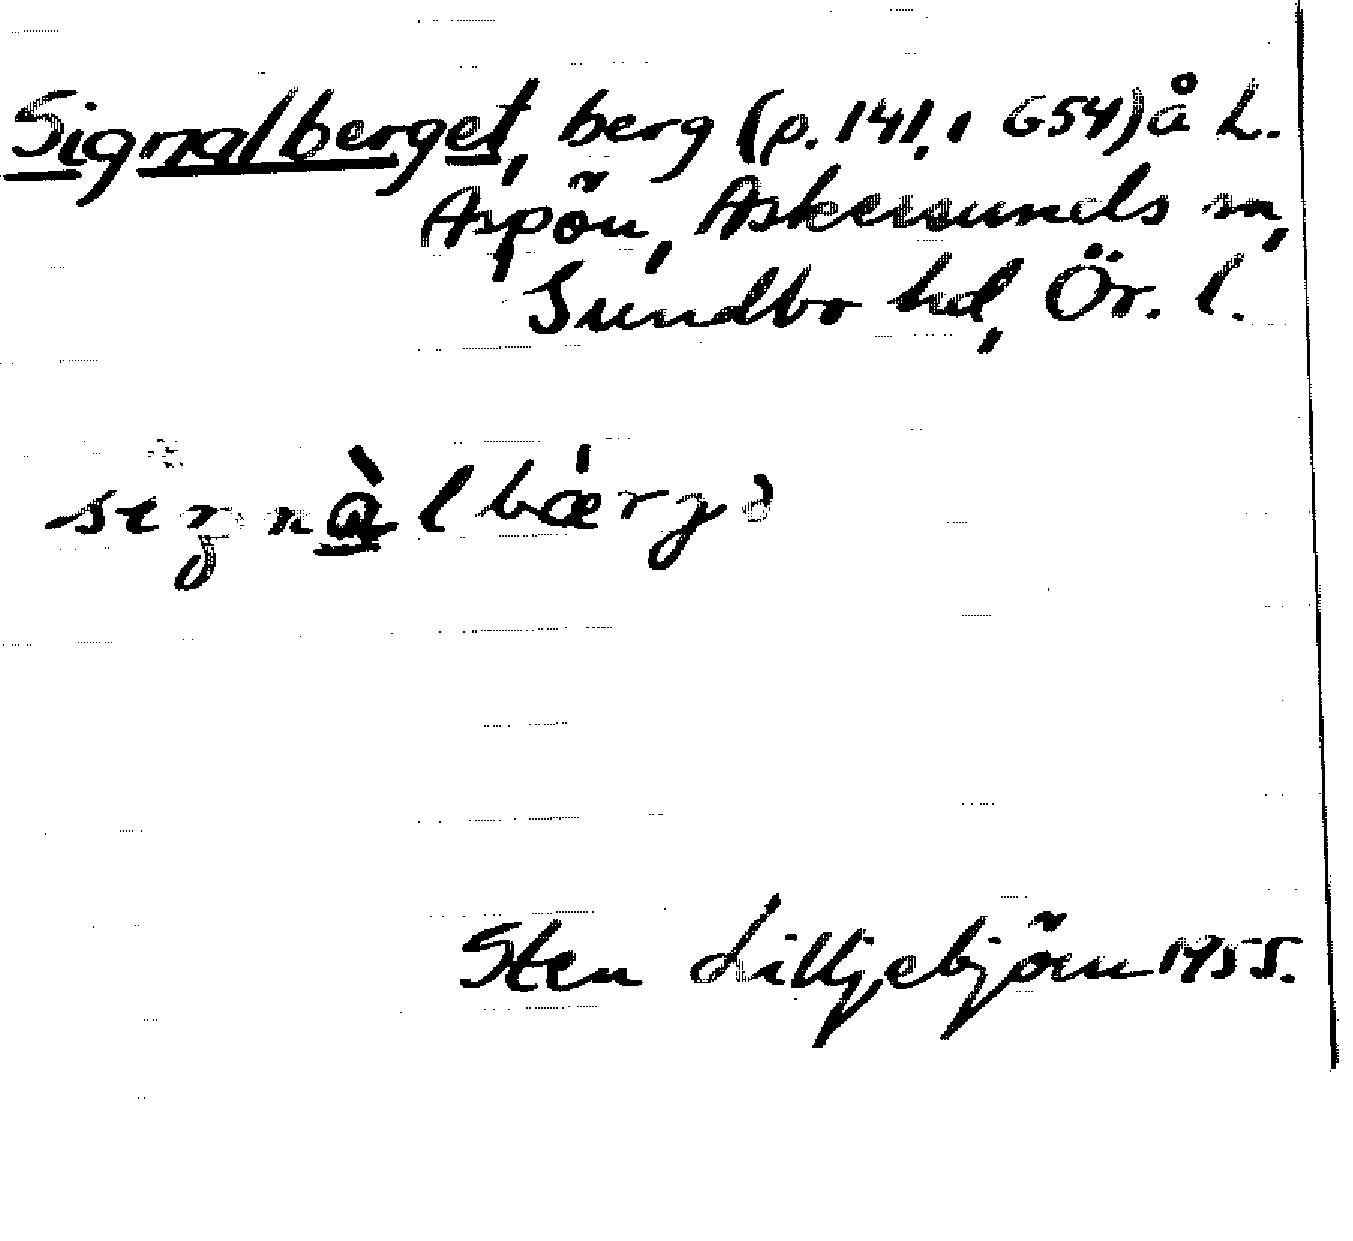 Signalberget, berg (p. 141, 1 G54) å L.
Aspön, Askersunds sn,
Sundbo hd, Ör. l.
Sten Liljebjörn 1955.